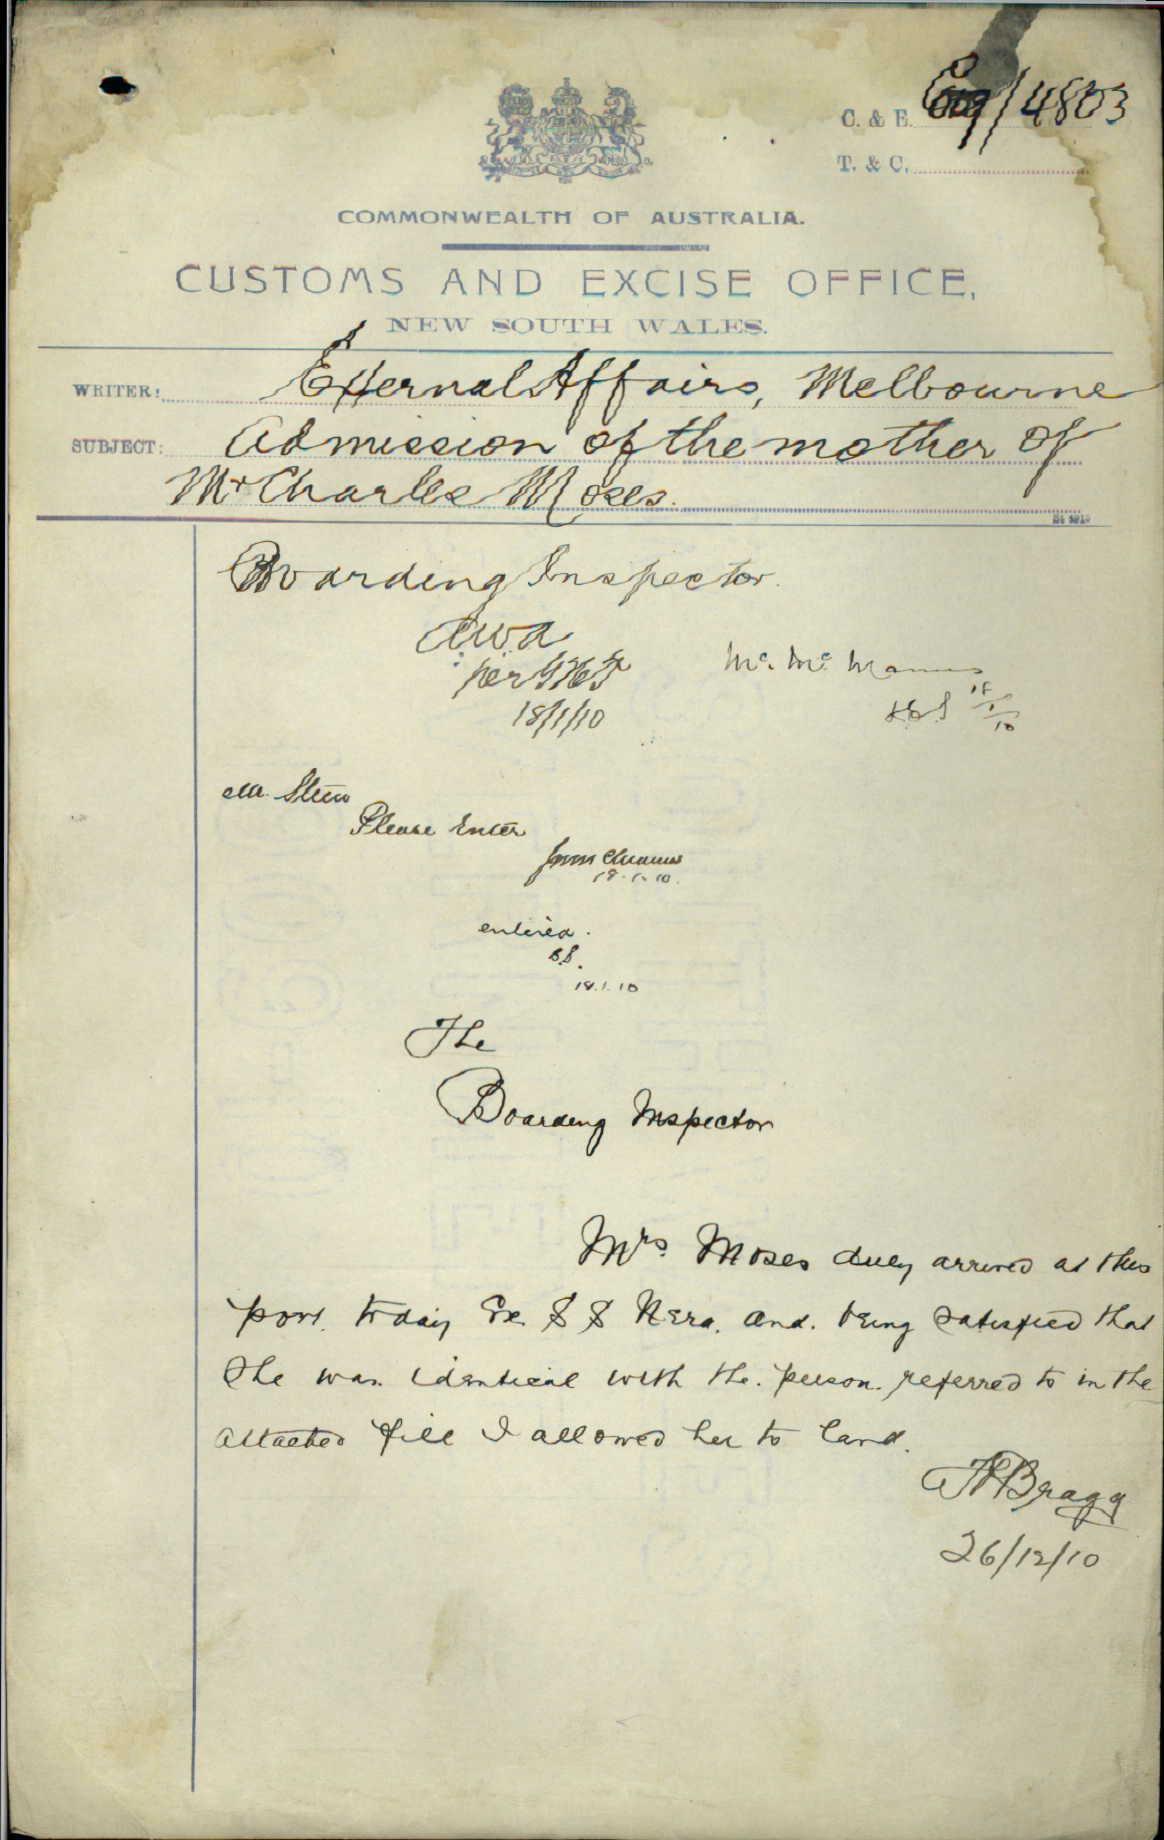 C. & E. 09/4803
T. & C.
COMMONWEALTH OF AUSTRALIA.
CUSTOMS AND EXCISE OFFICE,
NEW SOUTH WALES.
WRITER: External Affairs, Melbourne
SUBJECT: Admission of the mother of
Mr Charles Moses.
Boarding Inspector.
per
18/1/10
Mc. Mc Manus
18/1/10
Mr.
Please Enter
18.1.10.
entered.
B.S.
18.1.10
The
Boarding Inspector
Mrs. Moses duly arrived at this
port. today Ex S S Nera. and. being satisfied that
she was identical with the. person. referred to in the
attached file I allowed her to land.
Bragg
26/12/10